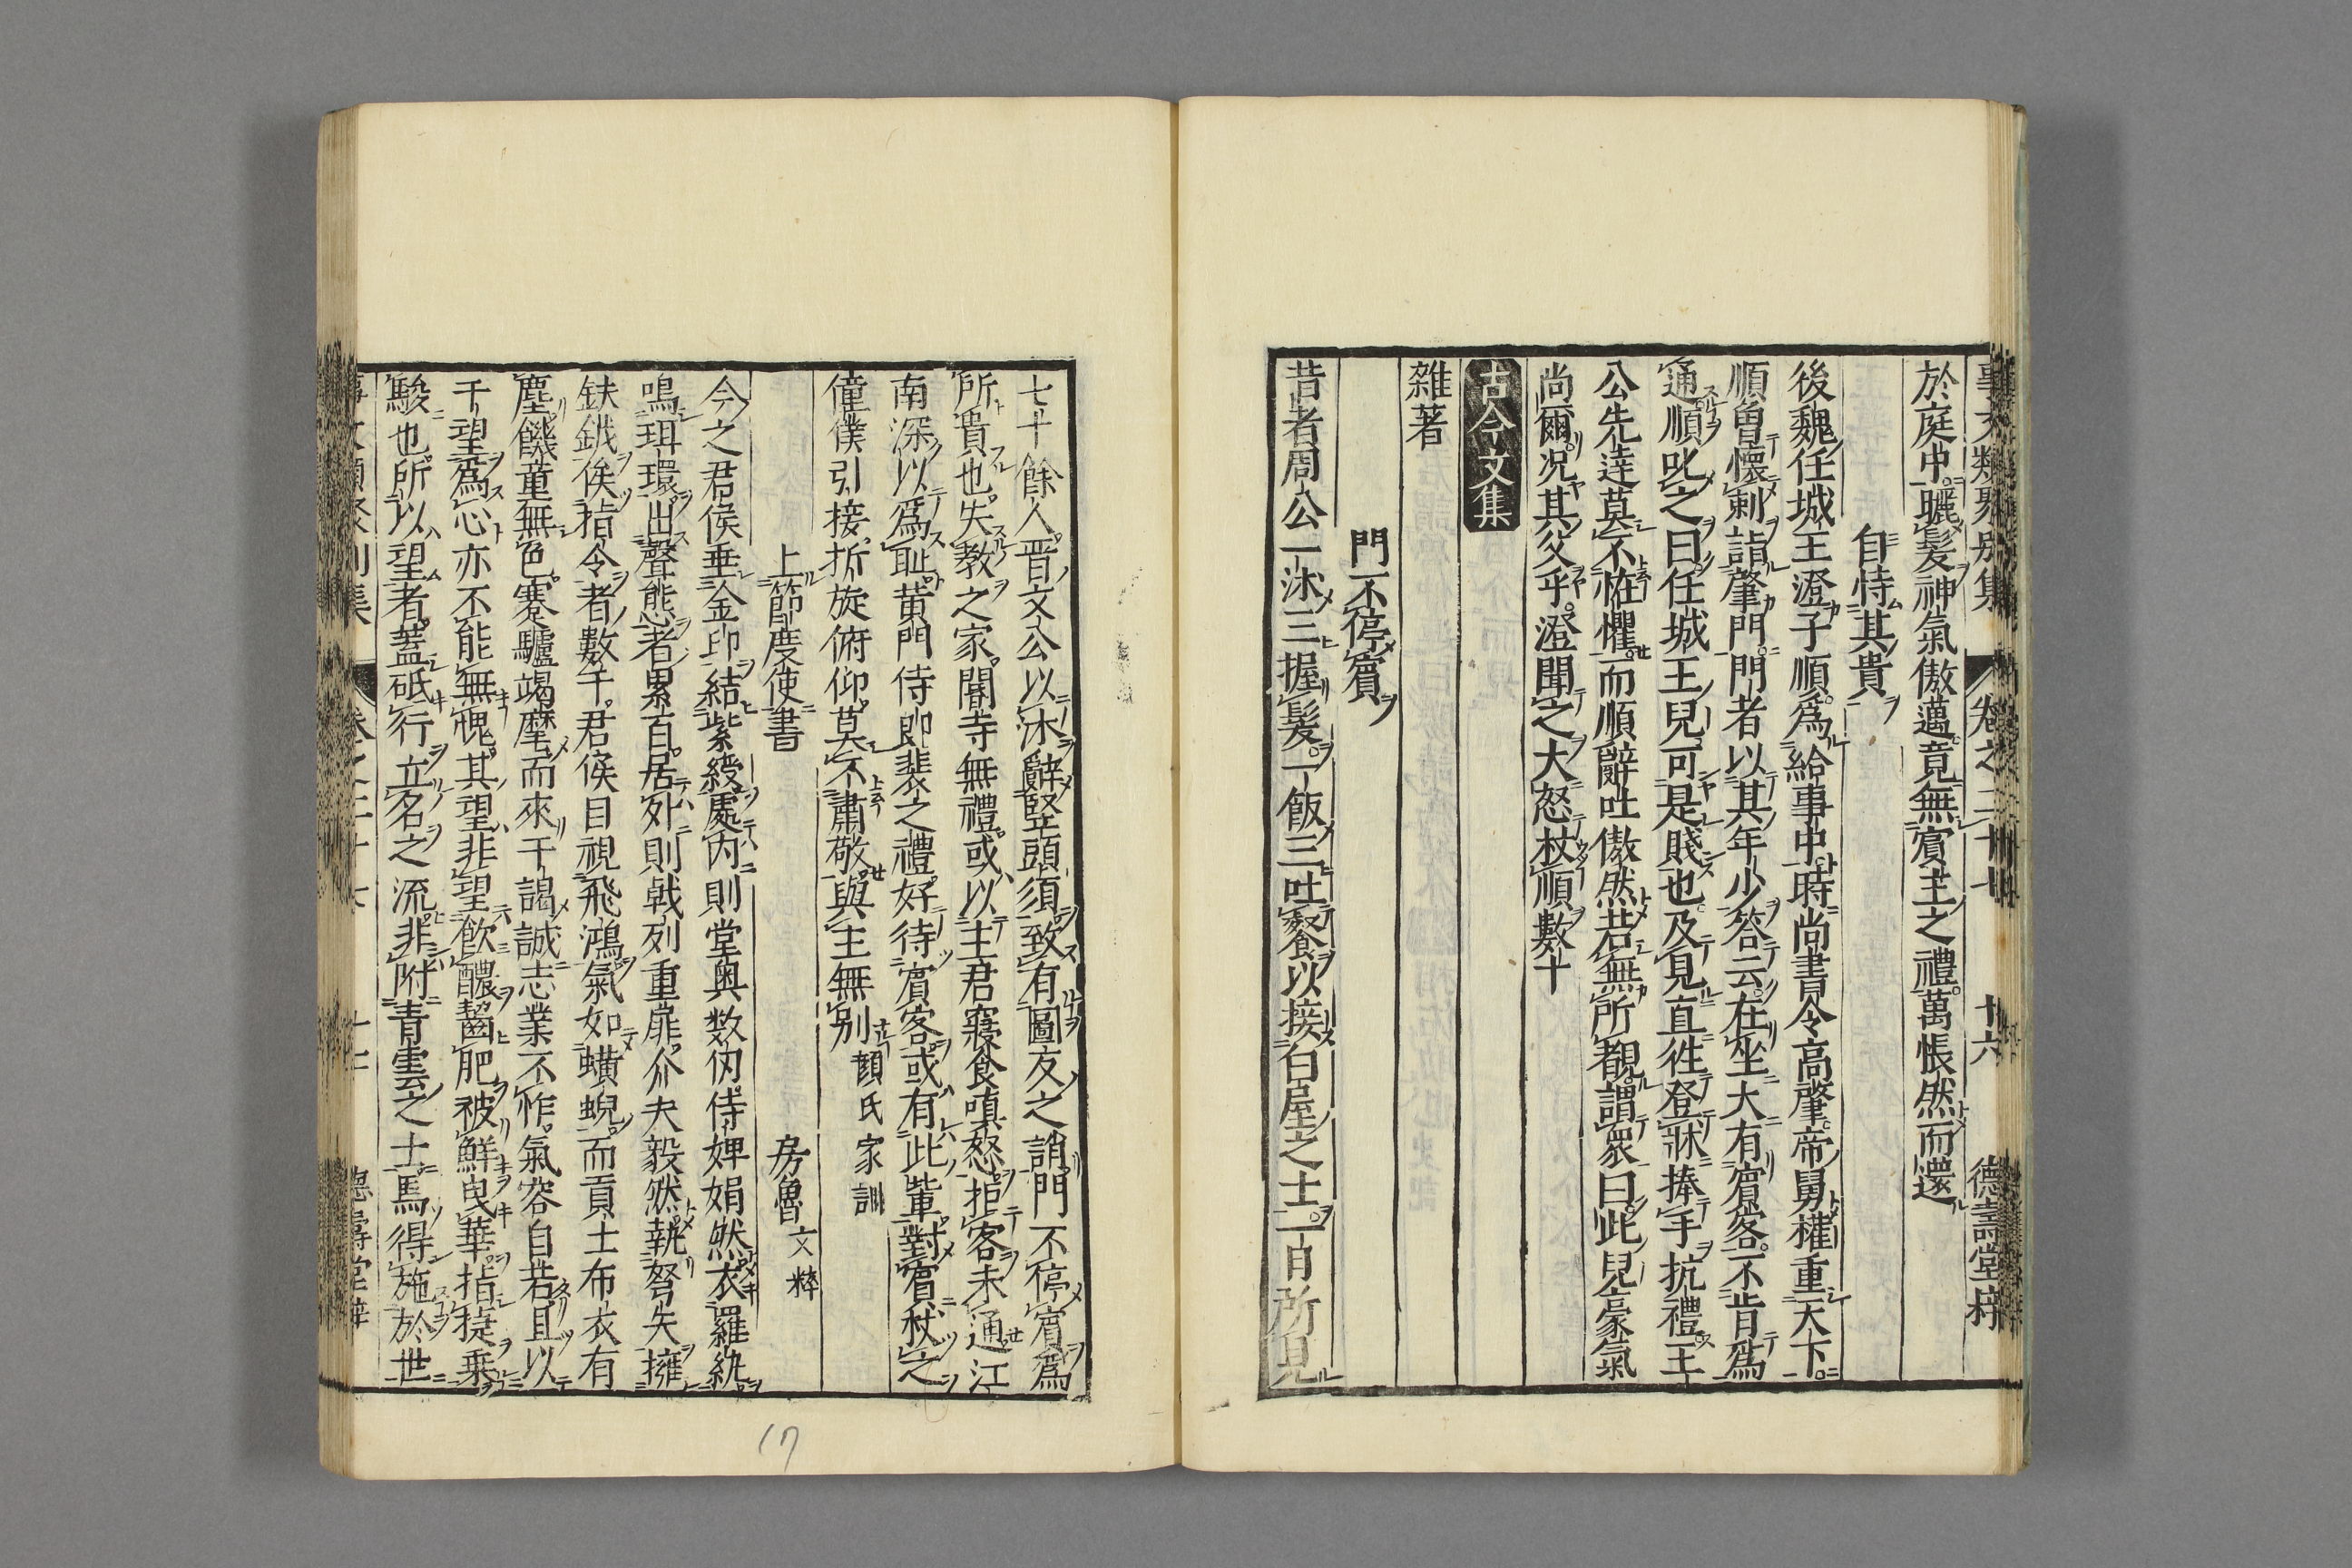 事文類聚別集 卷之二十七 十六 德壽堂梓
於庭中曬髮神氣傲邁竟無賓主之禮萬悵然而還
自恃其貴
後魏任城王澄子順爲給事中時尚書令高肇帝舅權重天下
順曾懷刺詣肇門門者以其年少答云在坐大有賓客不肯爲
通順叱之曰任城王兒可是賤也及見直徃登牀捧手抗禮王
公先達莫不恠懼而順辭吐傲然若無所覩謂衆曰此兒豪氣
尚爾况其父乎澄聞之大怒杖順數十
古今文集
雜著
門不停賓
昔者周公一沐三握髮一飯三吐餐以接白屋之士一日所見
七十餘人晋文公以沐辭竪頭須致有圖友之誚門不停賓爲
所貴也失教之家閽寺無禮或以主君寢食嗔怒拒客未通江
南深以爲耻黄門侍郎裴之禮好待賓客或有此輩對賓杖之
僮僕引接折旋俯仰莫不肅敬與主無别 顔氏家訓
上節度使書 房魯 文粹
今之君侯垂金印結紫綬處内則堂奥数仭侍婢娟然衣羅紈
鳴珥環出聲態者累百居外則戟列重扉介夫毅然執弩矢擁
鈇鉞俟指令者數千君侯目視飛鴻氣如蟥蜺而貢士布衣有
塵饑童無色蹇驢竭麾而來干謁誠志業不怍氣容自若且以
千望爲心亦不能無愧其望非望飲醲齧肥被鮮曳華指㨗乗
駿也所以望者蓋砥行立名之流非附青雲之士焉得施於世
事文類聚別集 卷之二十七 十七 德壽堂梓
17